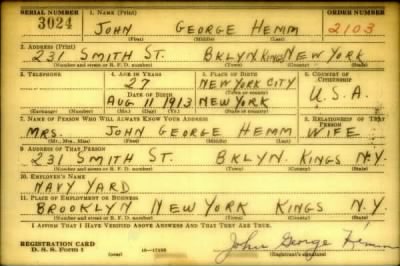 SERIAL NUMBER 1. NAME (Print) ORDER NUMBER
3024 JOHN GEORGE HEMM 2103
(First) (Middle) (Last)
2. ADDRESS (Print)
231 SMITH ST. BKLYN. KINGS NEW YORK
(Number and street or R. F. D. number) (Town) (County) (State)
3. TELEPHONE 4. AGE IN YEARS 5. PLACE OF BIRTH 6. COUNTRY OF CITIZENSHIP
27 NEW YORK CITY
DATE OF BIRTH (Town or county) U.S.A.
AUG 11 1913 NEW YORK
(Exchange) (Number) (Mo.) (Day) (Yr.) (State or country)
7. NAME OF PERSON WHO WILL ALWAYS KNOW YOUR ADDRESS 8. RELATIONSHIP OF THAT PERSON
MRS. JOHN GEORGE HEMM WIFE
(Mr., Mrs., Miss) (First) (Middle) (Last)
9. ADDRESS OF THAT PERSON
231 SMITH ST. BKLYN. KINGS N.Y.
(Number and street or R. F. D. number) (Town) (County) (State)
10. EMPLOYER'S NAME
NAVY YARD
11. PLACE OF EMPLOYMENT OR BUSINESS
BROOKLYN NEW YORK KINGS N.Y.
(Number and street or R. F. D. number) (Town) (County) (State)
I AFFIRM THAT I HAVE VERIFIED ABOVE ANSWERS AND THAT THEY ARE TRUE.
REGISTRATION CARD John George Hemm
D. S. S. Form 1 (over) (Registrant's signature)